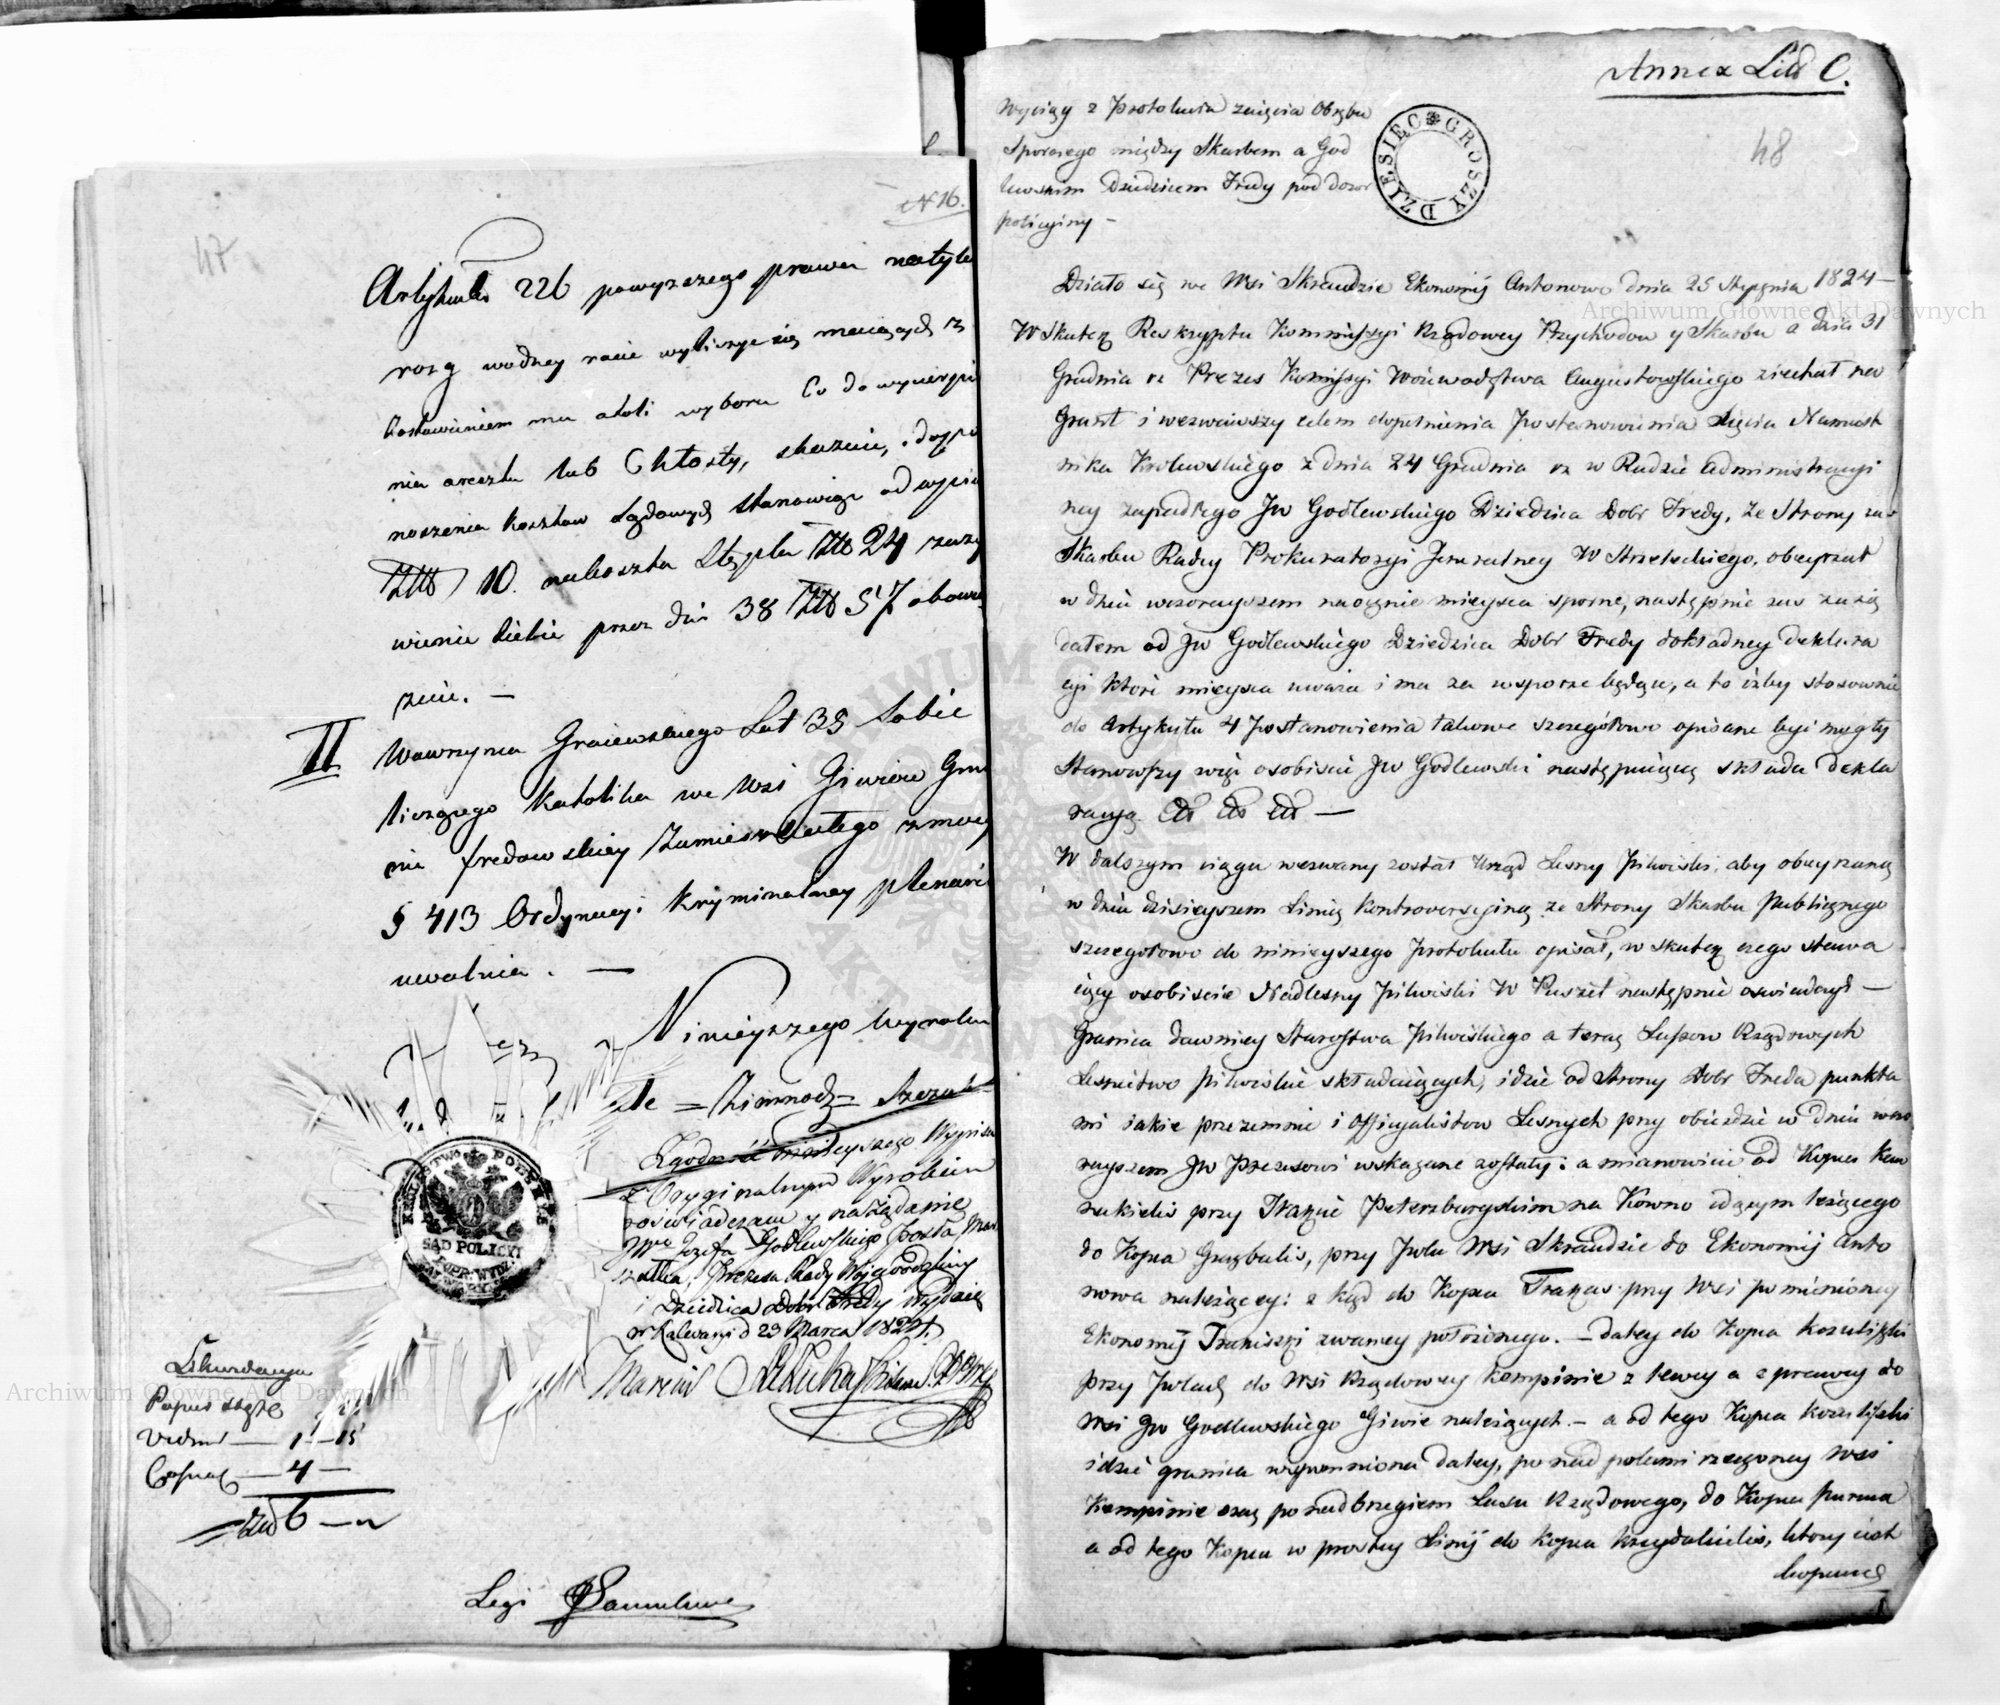 47
N 16.
Artykułu 226 powyższego prawa natyle
rozg wodney racie wyliczyć się maiących z
Zostawieniem mu atoli wyboru Co do wycierpie
nia aresztu lub Chłosty, skazuie, i do po
noszenia kosztów Sądowych stanowiąc od wyro
ZłtB 10. na koszta Stępla ZłtB 24
przez dni 38 ZłtB 57 obow
II
Wawrzyna Graiewskiego Lat 38 Sobie
liczącego Katolika we Wsi Giwien Gmi
nie fredowskiey Zamieszkałego z mocy
§ 413 Ordynacyi kryminalney plenarie
uwalnia. —
Ninieyszego Wyroku
Zgodność ninieyszego Wypisu
z Oryginalnym Wyrokiem
poświadczam y na żądanie
JWo Jozefa Godlewskiego Posła Mar
szałka, Prezesa Rady Woiewodzkiey
i Dziedzica Dobr Fredy wydaię
w Kalwaryi d 23 Marca 1824.
KRÓLESTWO POLSKIE
SĄD POLICYI
POPR: WYDZ:
Papier stęplo
Vidim — 1 — 15
4 —
Zł 6 —
Legi
Annex Litt C.
48
DZIESIĘĆ GROSZY
Wyciąg z Protokułu zaięcia Obrębu
Spornego między Skarbem a God
lewskim Dziedzicem Fredy pod dozor
policyiny —
Działo się we Wsi Skraudzie Ekonomij Antonowo dnia 25 Stycznia 1824 —
W Skutek Reskryptu Kommissyi Rządowey Przychodow y Skarbu z dnia 31
Grudnia rz Prezes Komissyi Woiewodztwa Augustowskiego ziechał na
Grunt i wezwawszy celem dopełnienia Postanowienia Xięcia Namiest
nika Krolewskiego z dnia 24 Grudnia rz w Radzie Administracyi
ney zapadłego JW Godlewskiego Dziedzica Dobr Fredy, ze Strony zaś
Skarbu Radcy Prokuratoryi Jeneralney W Strzeleckiego, obeyrzał
w dniu wczorayszem naocznie mieysca sporne, następnie zas zażą
dałem od JW Godlewskiego Dziedzica Dobr Fredy dokładney deklara
cyi które mieysca uważa i ma za w sporze będące, a to iżby stosownie
do Artykułu 4 Postanowienia takowe szczegółowo opisane być mogły
Stanowszy więc osobiście JW Godlewski następuiącą składa dekla
racyą Etc Etc Etc —
W dalszym ciągu wezwany został Urząd Lesny Pilwiski, aby obeyrzaną
w dniu dzisieyszem Linią kontrowersyiną ze Strony Skarbu Publicznego
szczegołowo do ninieyszego Protokułu opisał, w skutek czego stawa
iący osobiście Nadlesny Pilwiski W Puszet następnie oswiadczył —
Granica dawniey Starostwa Pilwiskiego a teraz Lasow Rządowych
Lesnictwo Pilwiskie składaiących, idzie od Strony Dobr Freda punkta
mi iakie przezemnie i Officyalistow Lesnych przy obieździe w dniu wczo
rayszem JW Prezesowi wskazane zostały: a mianowicie od Kopca Kau
nukielis przy Trakcie Petersburgskim na Kowno idącym leżącego
do Kopca Gruzbalis, przy Polu Wsi Skraudzie do Ekonomij Anto
nowa należącey: z kąd do Kopca Trakas przy Wsi pomienioney
Ekonomij Trakiszki zwaney położonego. — Daley do Kopca Kozuliszki
przy Polach do Wsi Rządowey Kempinie z lewey a z prawey do
Wsi JW Godlewskiego Giwie należących. — a od tego Kopca Kozuliszki
idzie granica wspomniona daley, ponad polami rzeczoney Wsi
Kempinie oraz ponad brzegiem Lasu Rządowego, do Kopca Purwa
a od tego Kopca w prostey Linij do kopca Krzyżakielis, ktory iest
kopcem
Archiwum Główne Akt Dawnych
Archiwum Główne Akt Dawnych